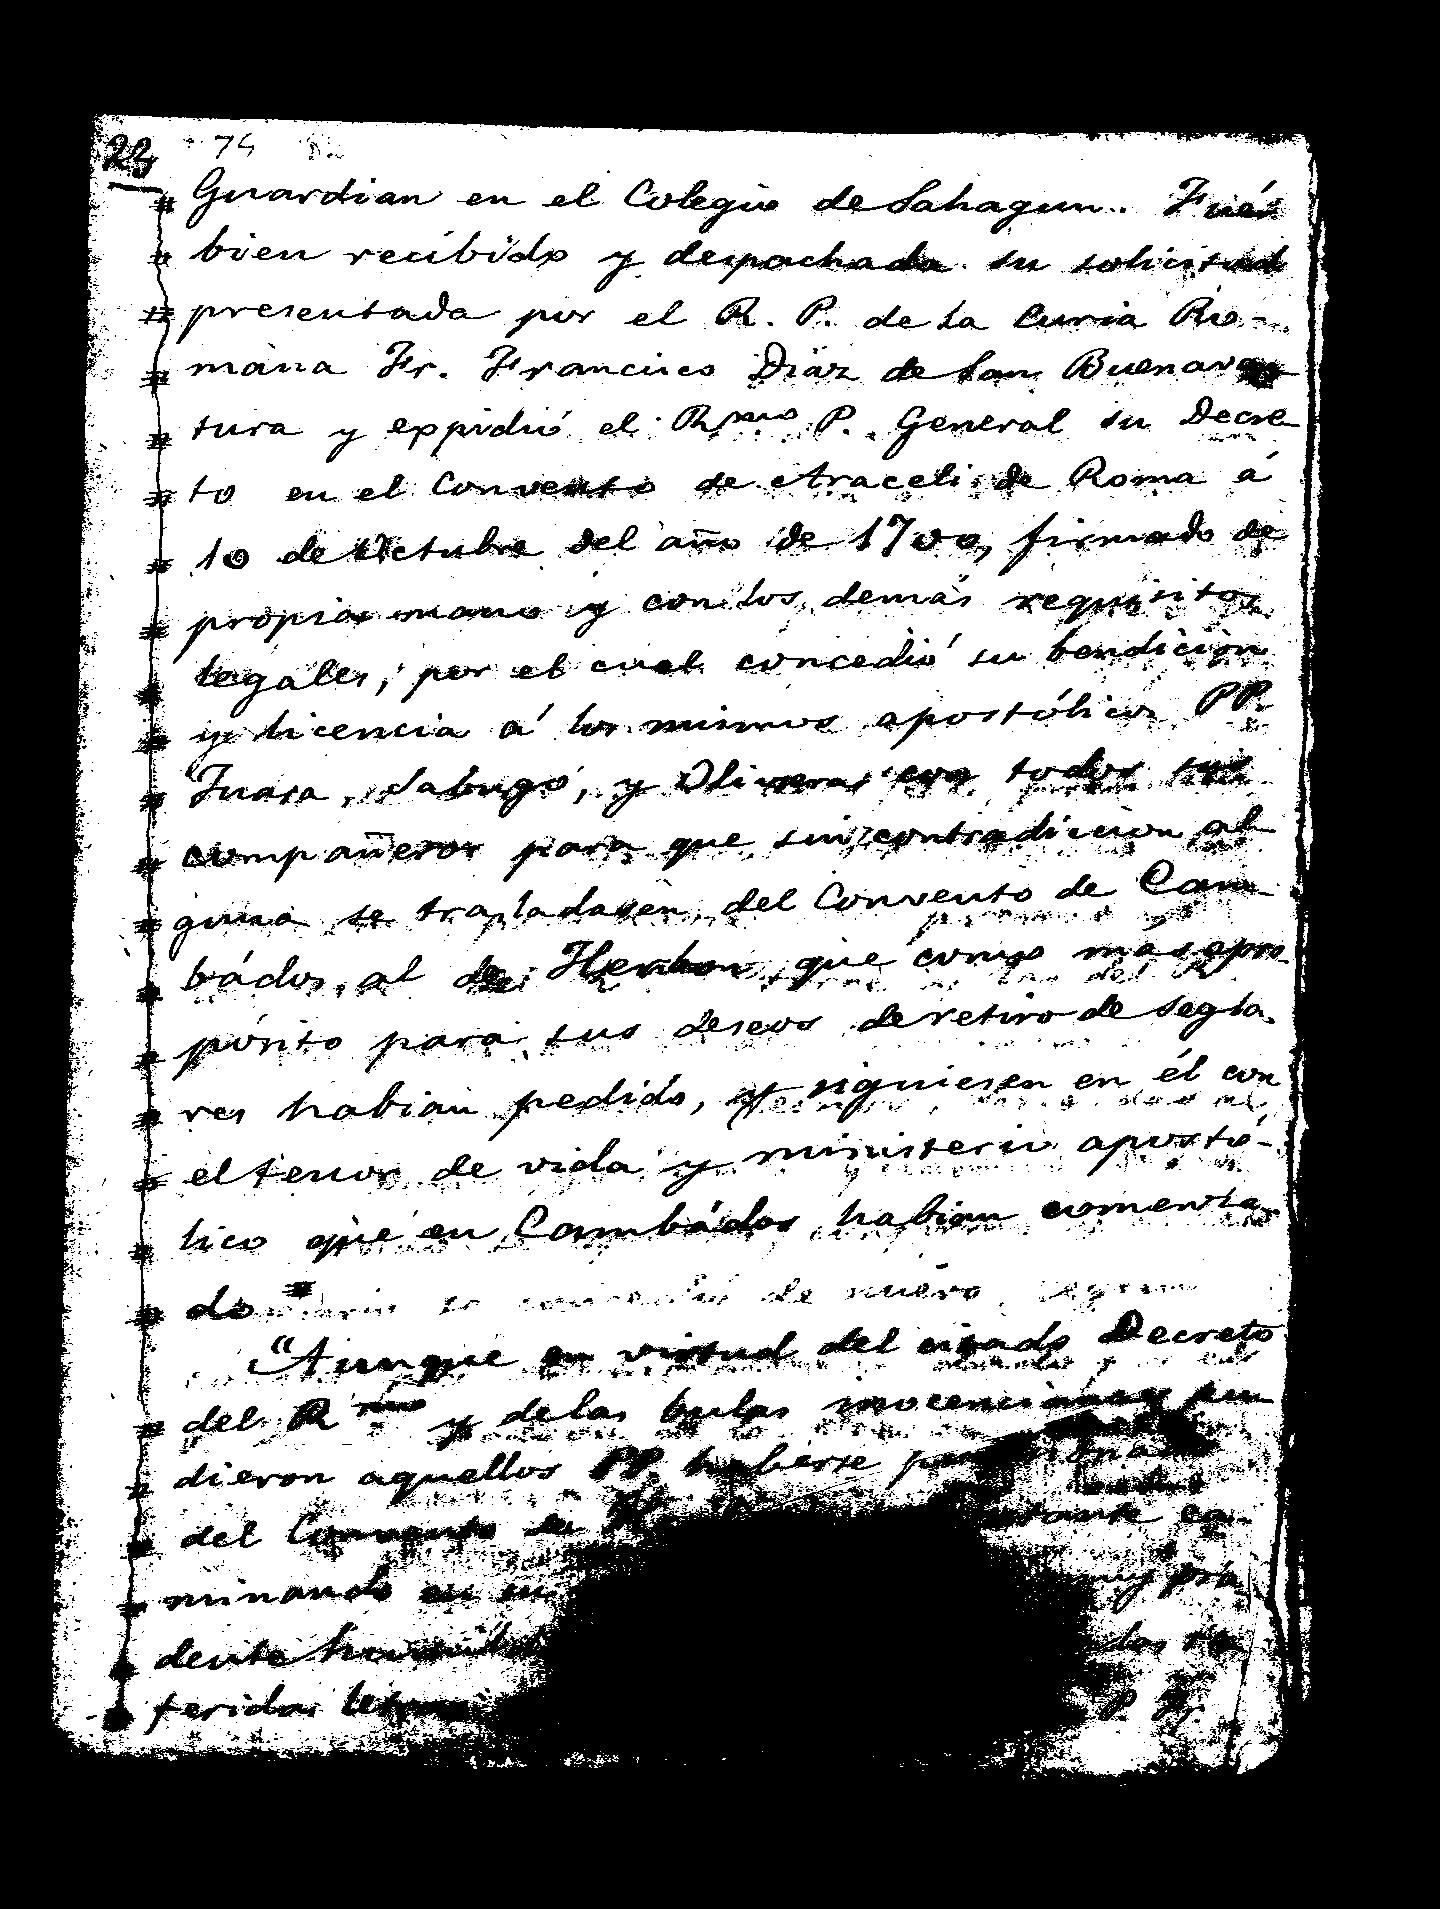 23 74
Guardian en el Colegio de Sahagun. Fué
bien recibido y despachada su solicitud
presentada por el R. P. de la Curia Ro-
mana Fr. Francisco Diaz de San Buenaven
tura y expidió el Rmo P. General su Decre
to en el Convento de Araceli de Roma á
10 de Octubre del año de 1700, firmado de
propia mano y con los demás requisitos
legales; por el cual concedió su bendicion
y licencia á los mismos apostólicos PP.
Juasa, Sabugo, y Oliveras con todos sus
compañeros para que sin contradiccion al
guna se trasladasen del Convento de Cam
bádos al de Herbon, que como más apro
pósito para sus deseos de retiro de segla
res habian pedido, y siguiesen en él con
el tenor de vida y ministerio apostó-
lico que en Cambádos habian comenza
do
"Aunque en virtud del citado Decreto
del Rmo y de las bulas inocencianas pu
dieron aquellos PP. haberse
del Convento de
minando en su muy pru
dente las re
feridas P. Fr.